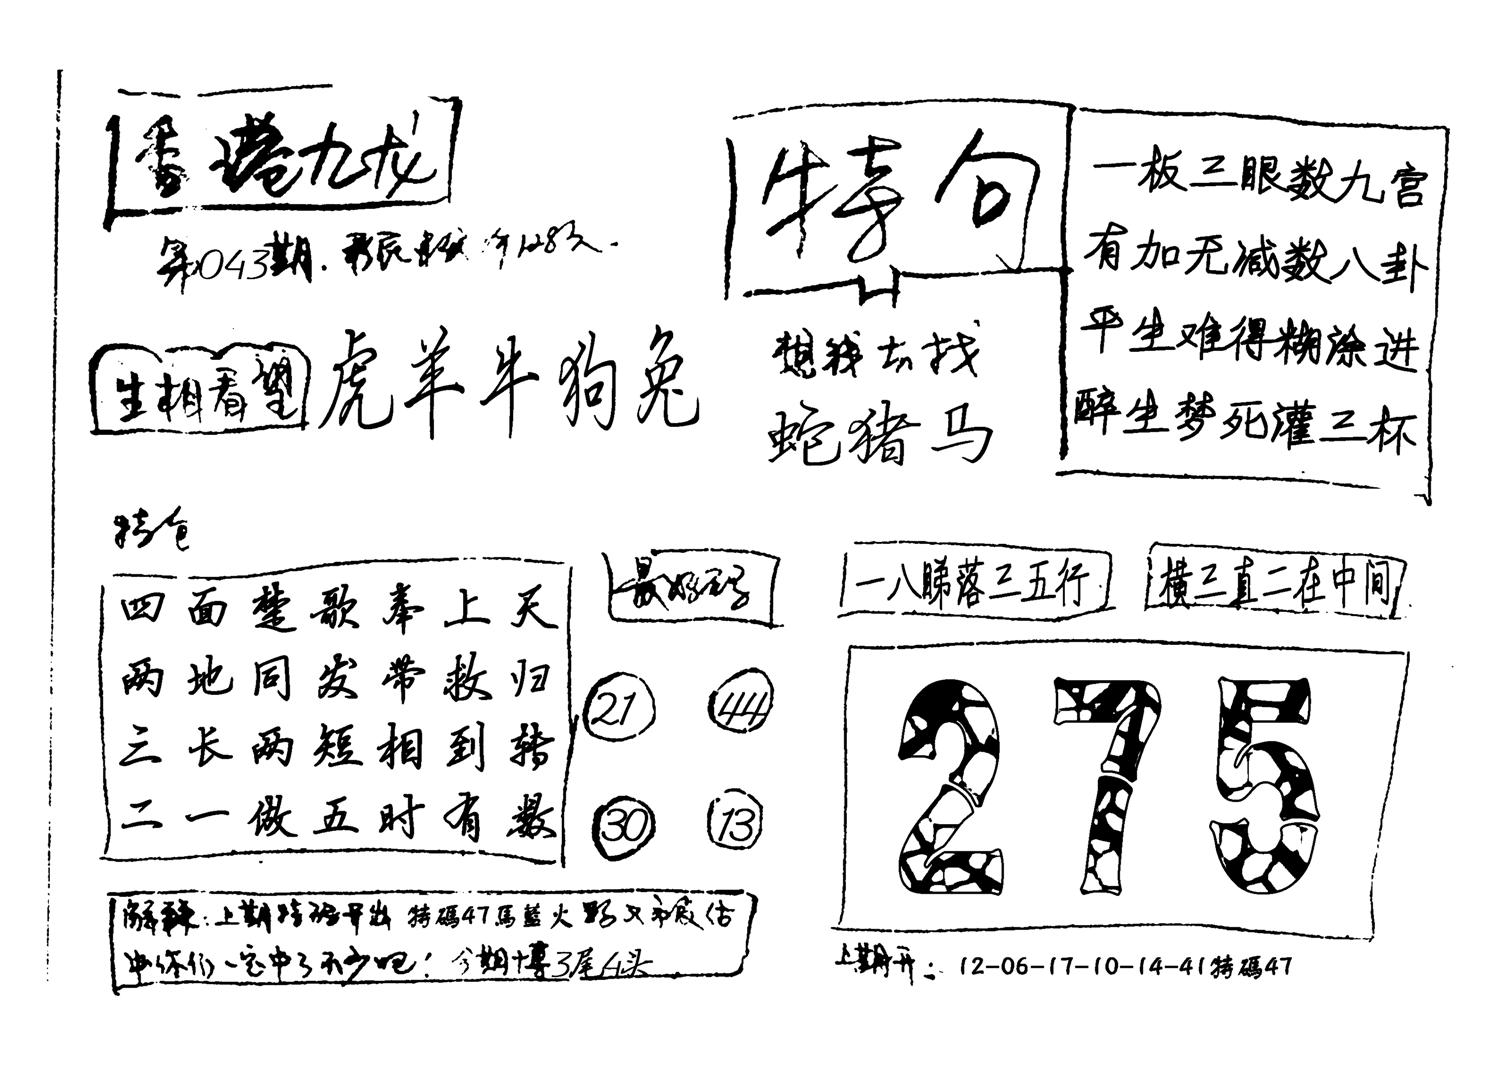 香港九龙
第043期.
生相看望
虎羊牛狗兔
特句
想我去找
蛇猪马
一板三眼数九宫
有加无减数八卦
平生难得糊涂进
醉生梦死灌三杯
四面楚歌奉上天
两地同发带救归
三长两短相到转
二一做五时有数
最好码
21 44
30 13
一八睇落三五行
横三直二在中间
275
上期特码开出 特碼47馬藍火
你们一定中了不少吧！今期博3尾4头
上期开： 12-06-17-10-14-41特碼47